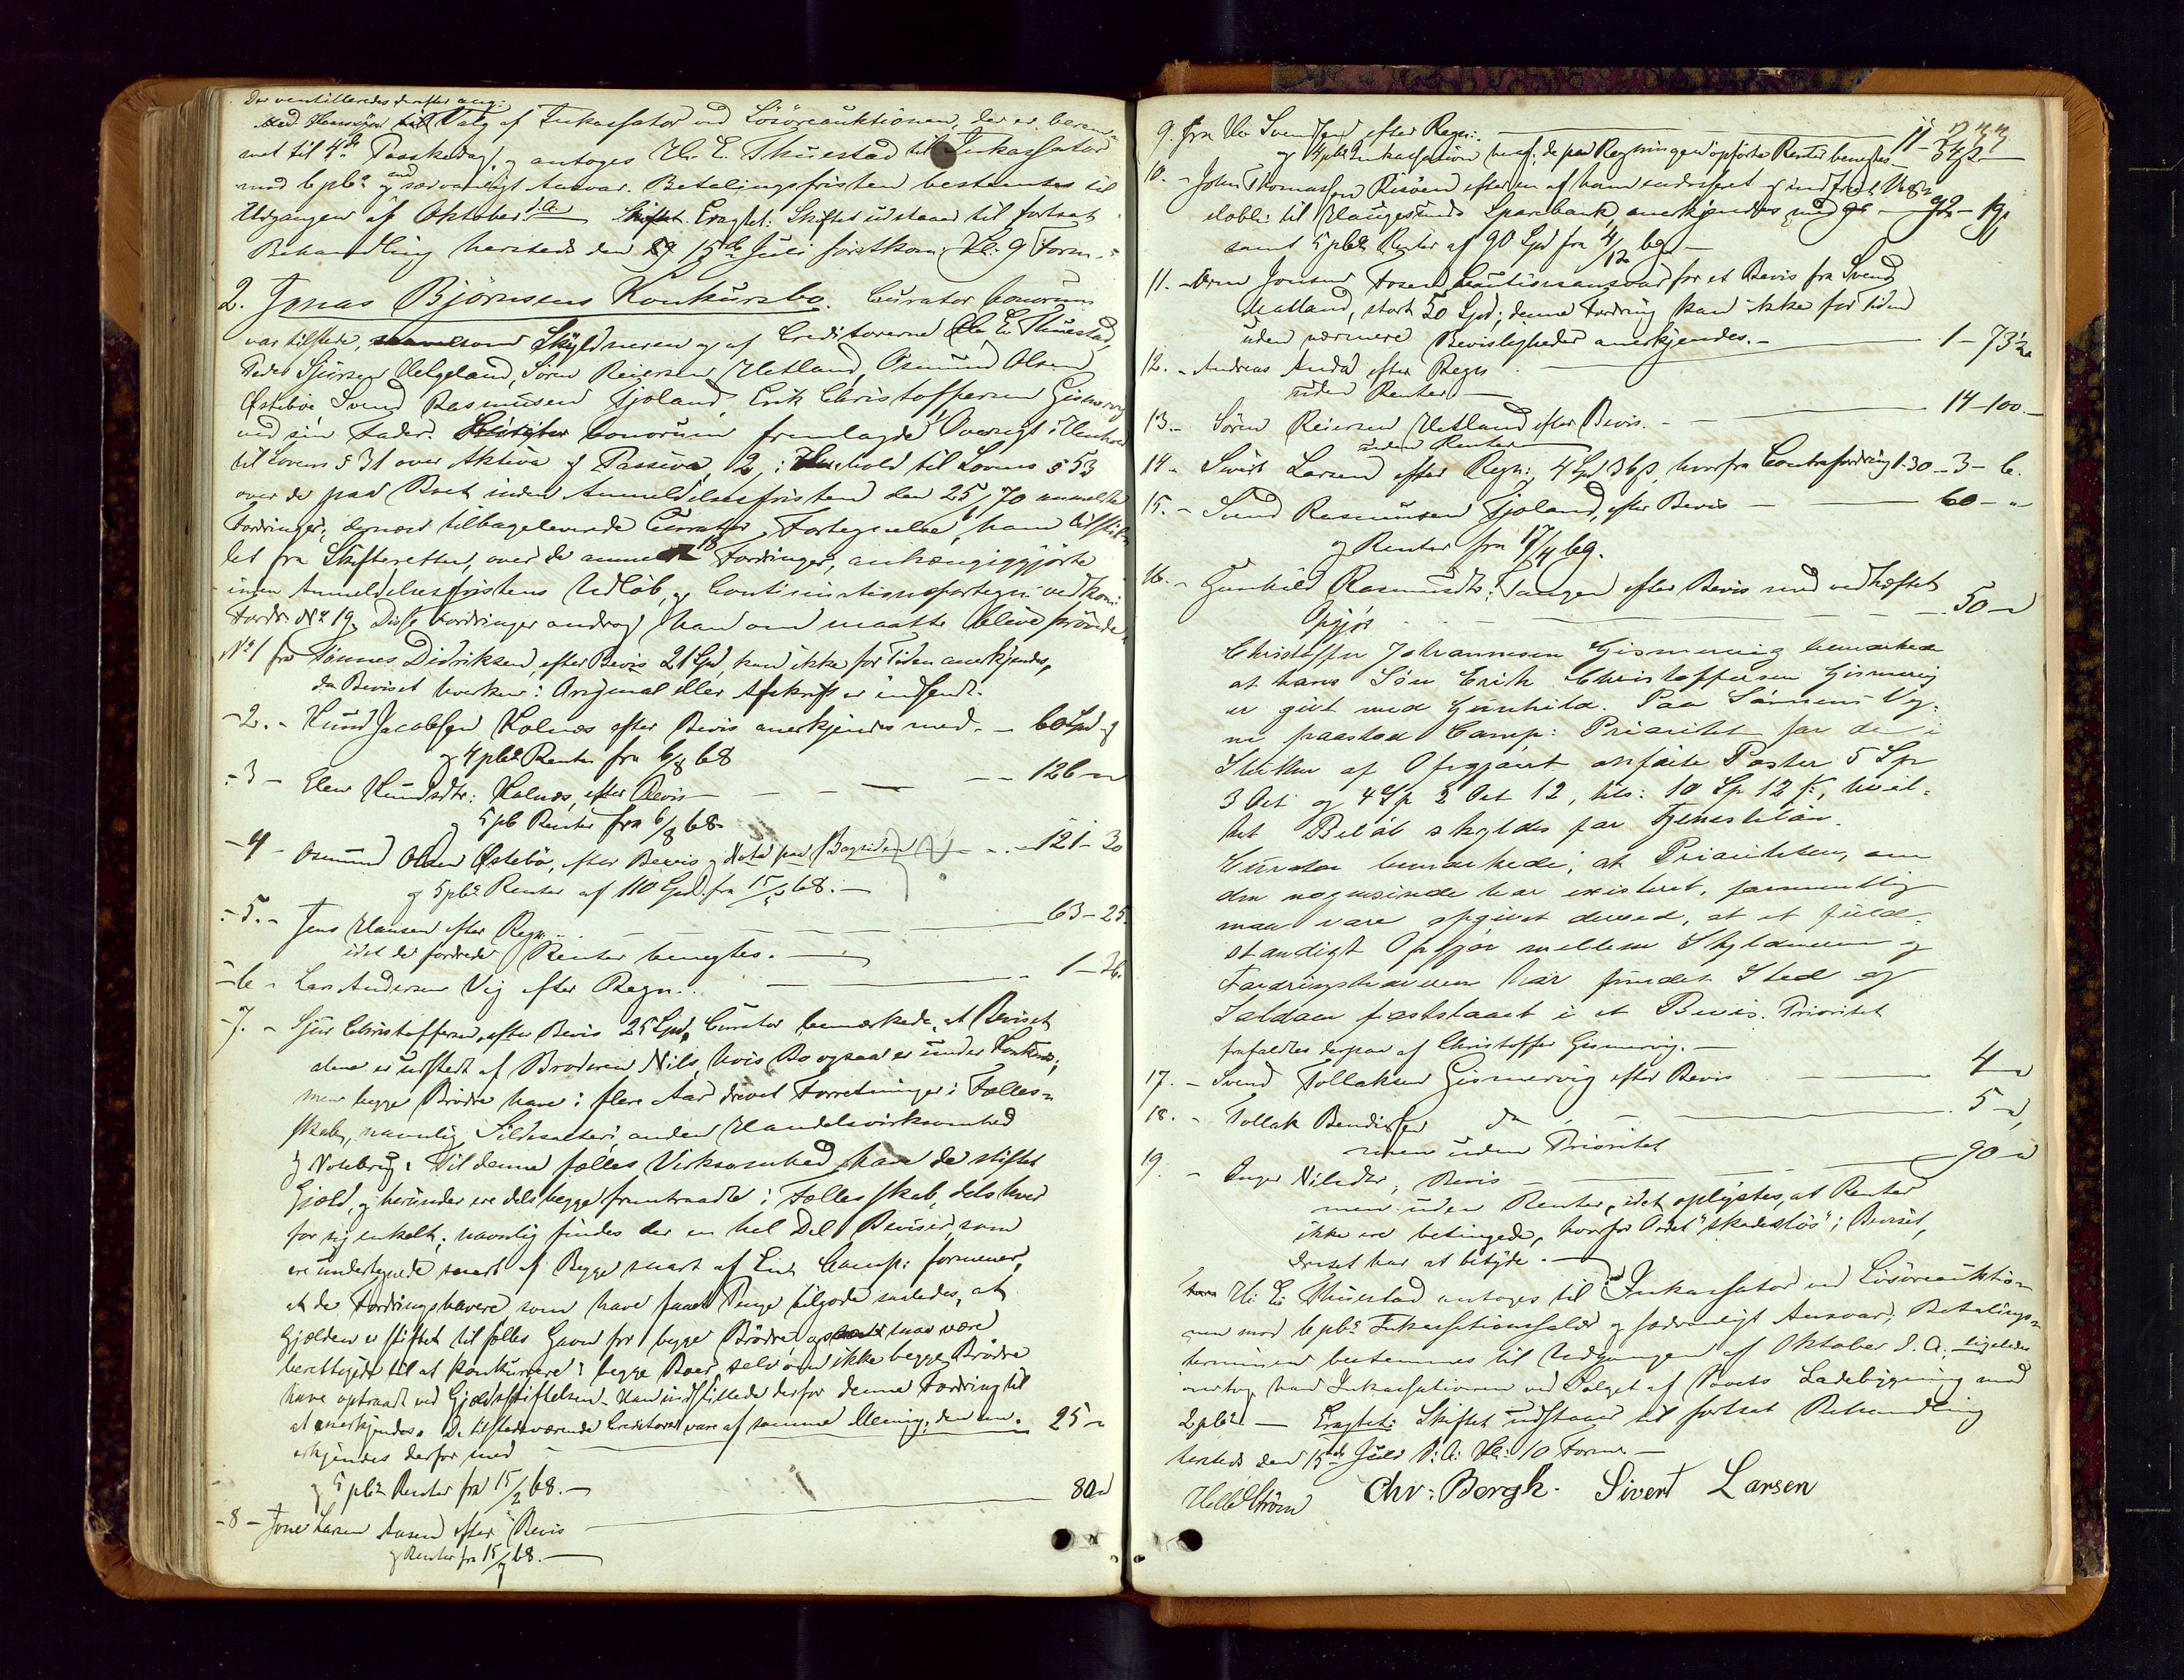 Der ventilleredes derefter ang:
Med Hensyn til Valg af Inkassator ved Lösöreauktionen, der er beram-
met til 4de Paaskedag, og antoges Hr. E. Thuestad til Inkassator
mod 6 pCt og end sædvanligt Ansvar. Betalingsfristen bestemtes til
Udgangen af Oktober d. A. Eragtet: Skiftet udstaaer til fortsat
Behandling hersteds den 15de Juli førstkom: Kl. 9 Form.
2. Jonas Bjørnsens Konkursbo. Curator bonorum
var tilstede, Skyldneren og af Creditorerne Hr. E. Thuestad,
Peder Sjursen Helgeland, Søren Reiersen Hetland, Osmund Olsen
Østebøe, Svend Rasmusen Fjoland, Erik Christoffersen Gismervig
ved sin Fader. bonorum fremlagde Oversigt i Henhold
til Lovens § 31 over Aktiva og Passiva, 2, i Henhold til Lovens § 53
over de paa Boet inden Anmeldelsesfristen den 25/ 70 anmeldte
Fordringer; dernæst tilbageleverede Curator Fortegnelse, ham tilstil-
let fra Skifteretten, over de anmeldte 18 Fordringer, anhængiggjorte
inden Anmeldelsesfristens Udløb, og Continuationsfortegn: vedkom:
Fordr. No 19. Disse Fordringer androg han om maatte blive prövede.
No 1 fra Tønnes Didriksen, efter Bevis 21 Spd, kan ikke for Tiden anerkjendes,
da Beviset hverken i Original eller Afskrift er indsendt.
- 2. - Knud Jacobsen Kolnæs efter Bevis anerkjendes med. - 60 Spd
og 4 pCt Renter fra 6/8 68
- 3 - Elen Knudsdtr: Kolnæs, efter Bevis - - - 126 -
og 5 pC Renter fra 6/8 68
- 4 - Osmund Olsen Østebö, efter Bevis og Nota paa Bagsiden - - 121 - 30
og 5 pCt Renter af 110 Spd. fra 15/ 68. -
- 5. - Jens Hansen efter Regn. - 63 - 25.
idet de fordrede Renter benegtes. -
- 6 - Lars Andersen Vig efter Regn. - 1 - 26.
- 7. - Sjur Christoffersen, efter Bevis 25 Spd, Curator bemærkede, at Beviset
alene er udstedt af Broderen Nils, hvis Bo ogsaa er under Konkurs;
men begge Brödre have i flere Aar drevet Forretninger i Fælles-
skab, navnlig Sildesalteri, anden Handelsvirksomhed
og Notebrug. Til denne fælles Virksomhed have de stiftet
Gjæld, og herunder ere dels begge fremtraadte i Fællesskab, dels hver
for sig enkelt; navnlig findes der en hel Del Beviser, som
ere undertegnede snart af Begge snart af Een. Comp: formener,
at de Fordringshavere som have Penge tilgode saaledes, at
Gjælden er stiftet til fælles Gavn for begge Brödre, maa være
berettigede til at konkurrere i begge Boer, selv om ikke begge Brödre
have optraadt ved Gjældsstiftelsen. Han indstillede derfor denne Fordring til
at anerkjendes. De tilstedeværende Creditorer vare af samme Mening; den an- 25 -
erkjendes derfor med
og 5 pCt Renter fra 15/2 68. -
- 8 - Jone Larsen Aasen efter Bevis 80 -
og Renter fra 15/ 68. -
233
9. fra Hr Svendsen efter Regn: - 11 - 54 1/2
og 4 pCt Inkassation heraf; de paa Regningen opførte Renter benegtes
10. - John Thomassen Risöen efter en af ham endosseret og indfriet Vexel-
obli: til Haugesunds Sparebank, anerkjendes med - 92 - 19,
samt 5 pCt Renter af 90 Spd fra 4/12 69 -
11. - Jonsen Fosen Cautionsansvar for et Bevis fra Svend
Matland, stort 50 Spd; denne Fordring kan ikke for Tiden
uden nærmere Bevisligheder anerkjendes. -
12. - Andreas Anda efter Regn - 1 - 73 1/2
uden Renter -
13. - Søren Reiersen Hetland efter Bevis. - 14 - 100. -
uden Renter
14 - Sivert Larsen efter Regn: 4 Spd 36 s, hvorfra Contrafordring 1-30 - 3 - 6.
15. - Svend Rasmusen Fjoland, efter Bevis - 60 - "
og Renter fra 17/4 69.
16. - Gunhild Rasmusdtr: Tangen efter Bevis med vedhæftet
Opgjør - 50 -
Christoffer Johannesen Gismervig bemærkede
at hans Søn Erik Christoffersen Gismervig
er gift med Gunhild. Paa Sønnens Veg-
ne paastod Comp: Prioritet for de i
Slutten af Opgjøret anførte Poster 5 Sp
3 Ort og 4 Sp 2 Ort 12, tils: 10 Sp 12 s, hvil-
ket Beløb skyldes for Tjenesteløn.
Curator bemærkede, at Prioriteten, om
den nogensinde har existeret, formentlig
maa være opgivet derved, at et fuld-
stændigt Opgjør mellem Skyldneren og
Fordringshaveren har fundet Sted og
Saldoen fastslaaet i et Bevis. Prioritet
frafaldtes derpaa af Christoffer Gismervig. -
17. - Svend Tollaksen Gismervig efter Bevis - 4 -
18. - Tollak Bendixsen do - 5 -
men uden Prioritet
19. - Inger Nilsdtr, Bevis - 90 -
men uden Renter, idet oplystes, at Renter
ikke ere betingede, hvorfor Ordet "skadeslös" i Beviset,
intet har at betyde. -
Hr. E. Thuestad antoges til Inkassator ved Lösöreauktio-
nen mod 6 pCt Inkassationssalær og sædvanligt Ansvar; Betalings-
terminen bestemmes til Udgangen af Oktober d. A. ligeledes
overtog han Inkassationen ved Salget af Boets Ladebygning mod
2 pCt - Eragtet: Skiftet udstaaer til fortsat Behandling
hersteds den 15de Juli d: A: Kl: 10 Form. -
Chr: Bergh. Sivert Larsen